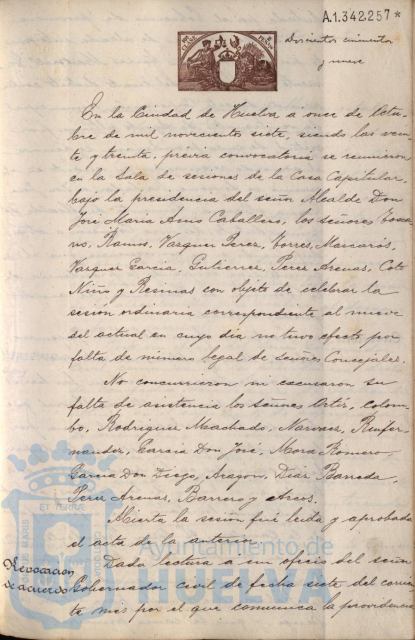 A.1.342.257*
Doscientos cincuenta
y nueve
En la Ciudad de Huelva á once de Octu-
bre de mil novecientos siete, siendo las vein-
te y treinta, previa convocatoria se reunieron
en la Sala de sesiones de la Casa Capitular,
bajo la presidencia del señor Alcalde Don
José Maria Caballero, los señores
Ramos, Vazquez Perez, Torres, Mascarós,
Vazquez Garcia, Gutierrez, Perez Arenas, Coto
Niño y Resinas con objeto de celebrar la
sesión ordinaria correspondiente al nueve
del actual en cuyo dia no tuvo efecto por
falta de número legal de señores Concejales.
No concurrieron ni escusaron su
falta de asistencia los señores Ortiz, Colom-
bo, Rodriguez Machado, Narvaez, Ruifer-
nandez, Garcia Don José, Mora Romero,
Garcia Don Diego, Aragon, Diaz Barreda,
Perez Arenas, Barrero y Arcos.
Abierta la sesión fué leida y aprobada
el acta de la anterior.
Revocacion
de acuerdo
Dada lectura a un oficio del señor
Gobernador civil de fecha siete del corrien-
te mes por el que comunica la providencia
Ayuntamiento de
HUELVA